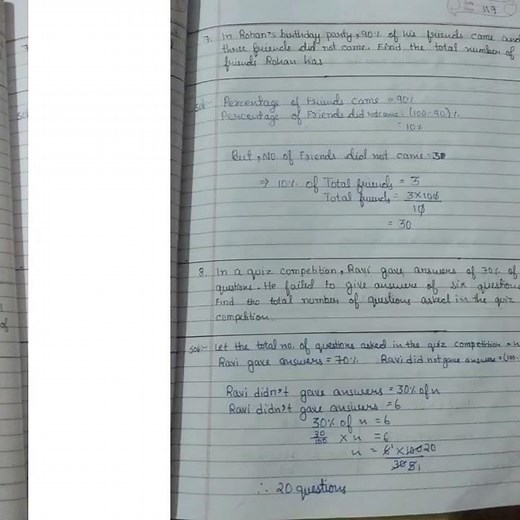 117
7. In Rohan's birthday party, 90% of his friends came and
three friends did not come. Find the total number of
friends Rohan has
Sol:- Percentage of Friends came = 90%
Percentage of Friends did not come = (100-90)%
= 10%
But, No. of Friends did not came = 3
⇒ 10% of Total friends = 3
Total friends = 3×100
10
= 30
8. In a quiz competition, Ravi gave answers of 70% of
questions. He failed to give answers of six questions
Find the total number of questions asked in the quiz
competition.
Sol:- Let the total no. of questions asked in the quiz competition = n
Ravi gave answers = 70% Ravi did not gave answers = (100-
Ravi didn't gave answers = 30% of n
Ravi didn't gave answers = 6
30% of n = 6
30/100 × n = 6
n = 6 × 100 20
30 5 1
∴ 20 questions
of